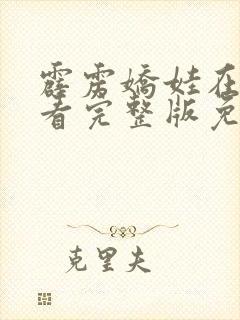 霹雳嬌娃在
看完整版免
克里夫